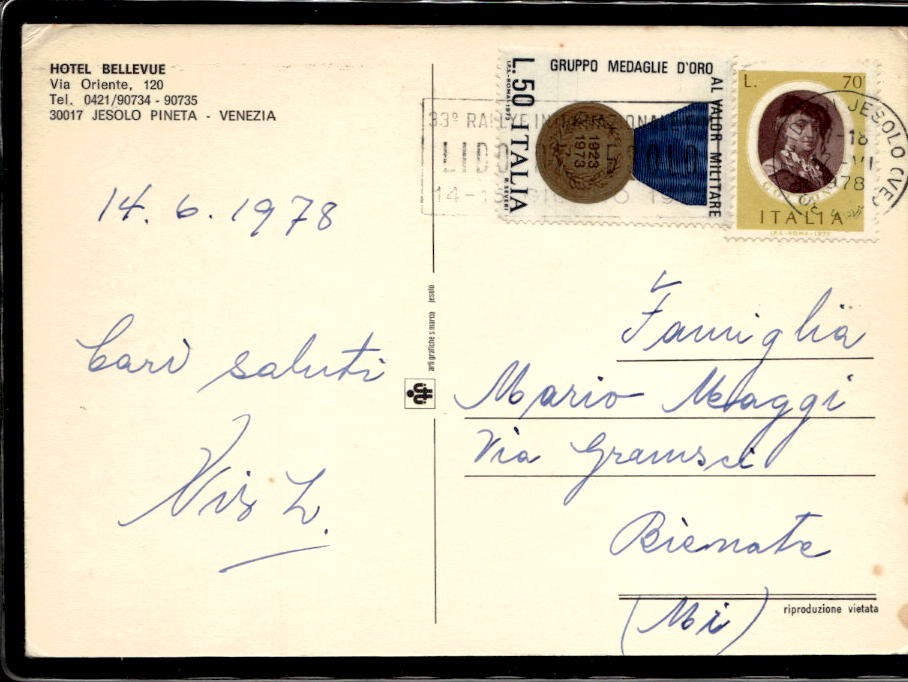 HOTEL BELLEVUE
Via Oriente, 120
Tel. 0421/90734 - 90735
30017 JESOLO PINETA - VENEZIA
14. 6. 1978
Cari saluti
L. 50 ITALIA
GRUPPO MEDAGLIE D'ORO
AL VALOR MILITARE
1923
1973
I.P.S. - ROMA - 1973
R. SEVERI
L. 70
ITALIA
I.P.S. - ROMA - 1975
33° RALLYE
LIDO
JESOLO (VE)
18
VI
78
jesolo
Famiglia
Mario Maggi
Via Gramsci
Bienate
(Mi)
riproduzione vietata